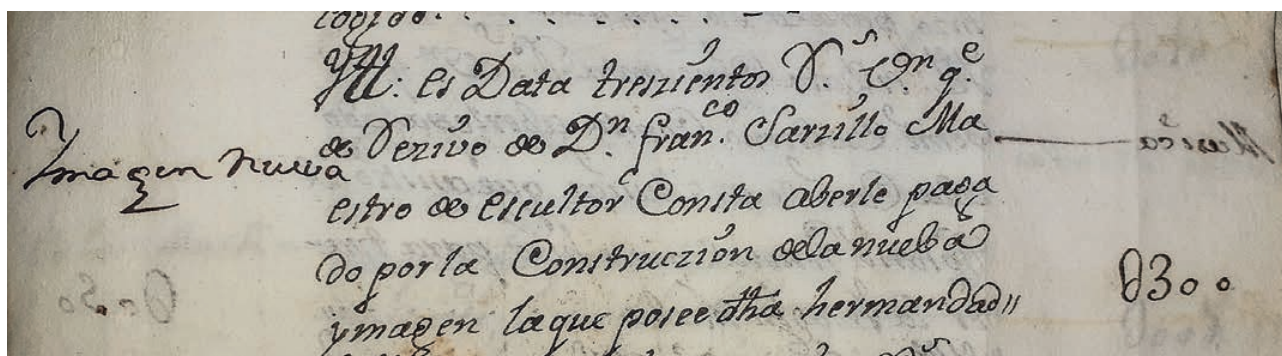 cogido. . . . . . . . .
Ytt: es Data treszientos Rs. Vn. qe.
de Rezivo de Dn. Franco. Sarzillo Ma
Imagen Nueva
estro de escultor Consta aberle paga
do por la Construczion dela nueba
ymagen la que posee dha hermandad
0300